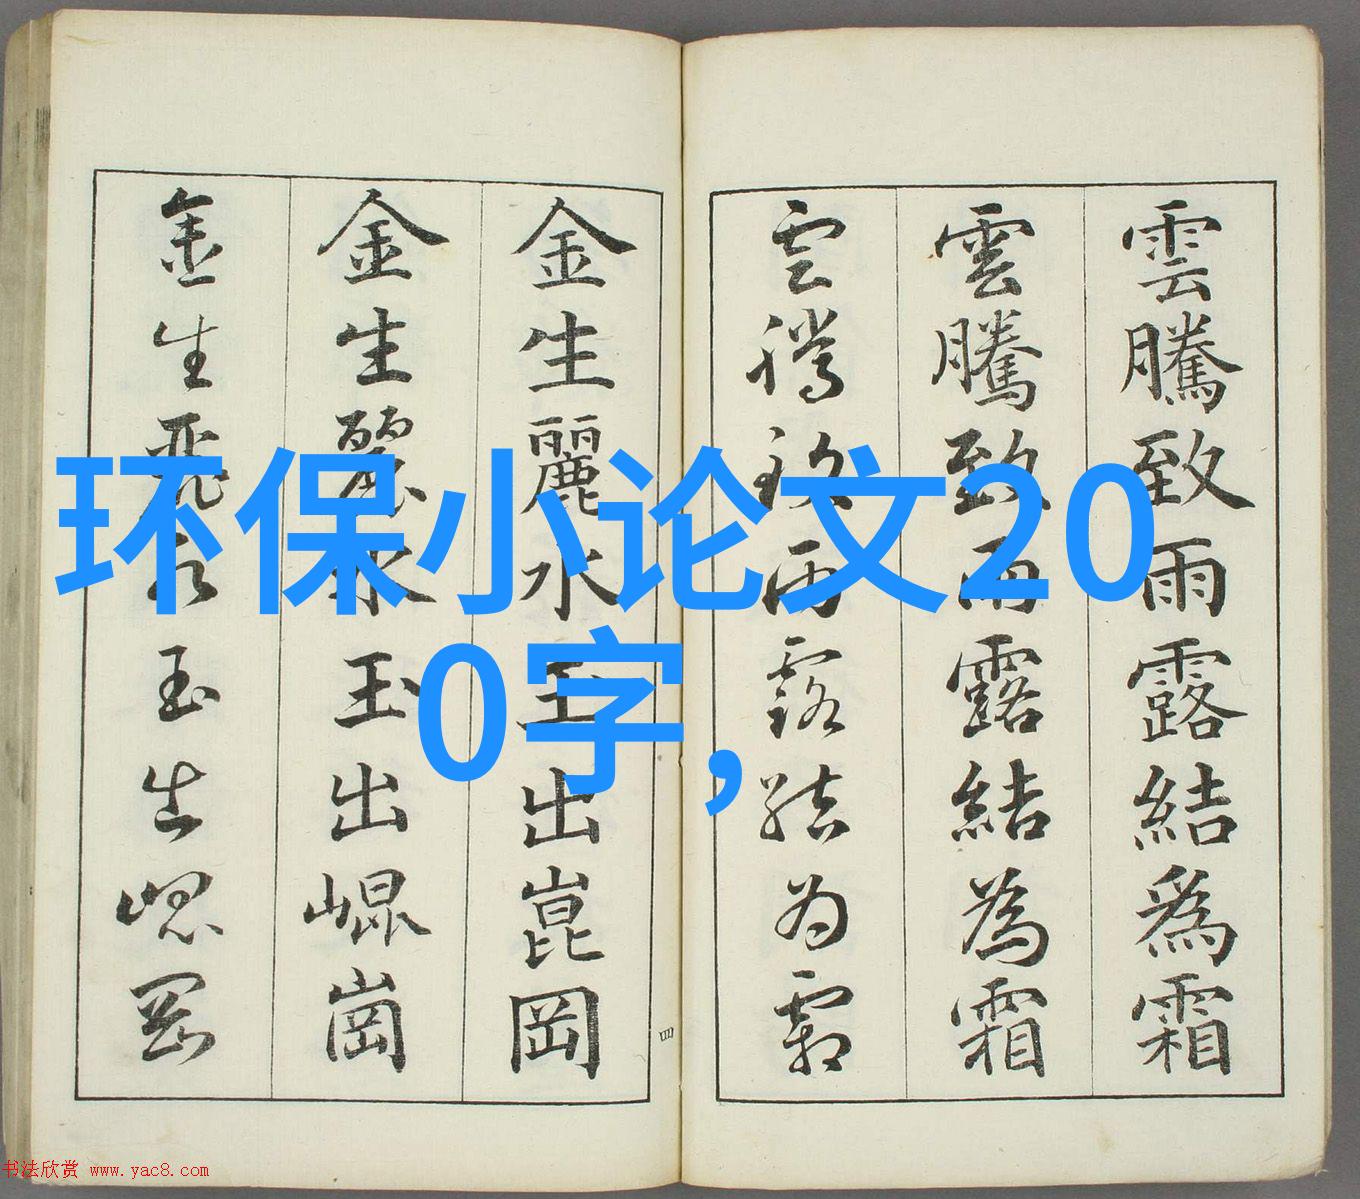 雲騰致雨露結為霜
雲騰致雨露結為霜
雲騰致雨露結为霜
金生麗水玉出崑岡
金生麗水玉出崐崗
金生麗水玉出崐岡
四
环保小论文20
0字,
书法欣赏 www.yac8.com